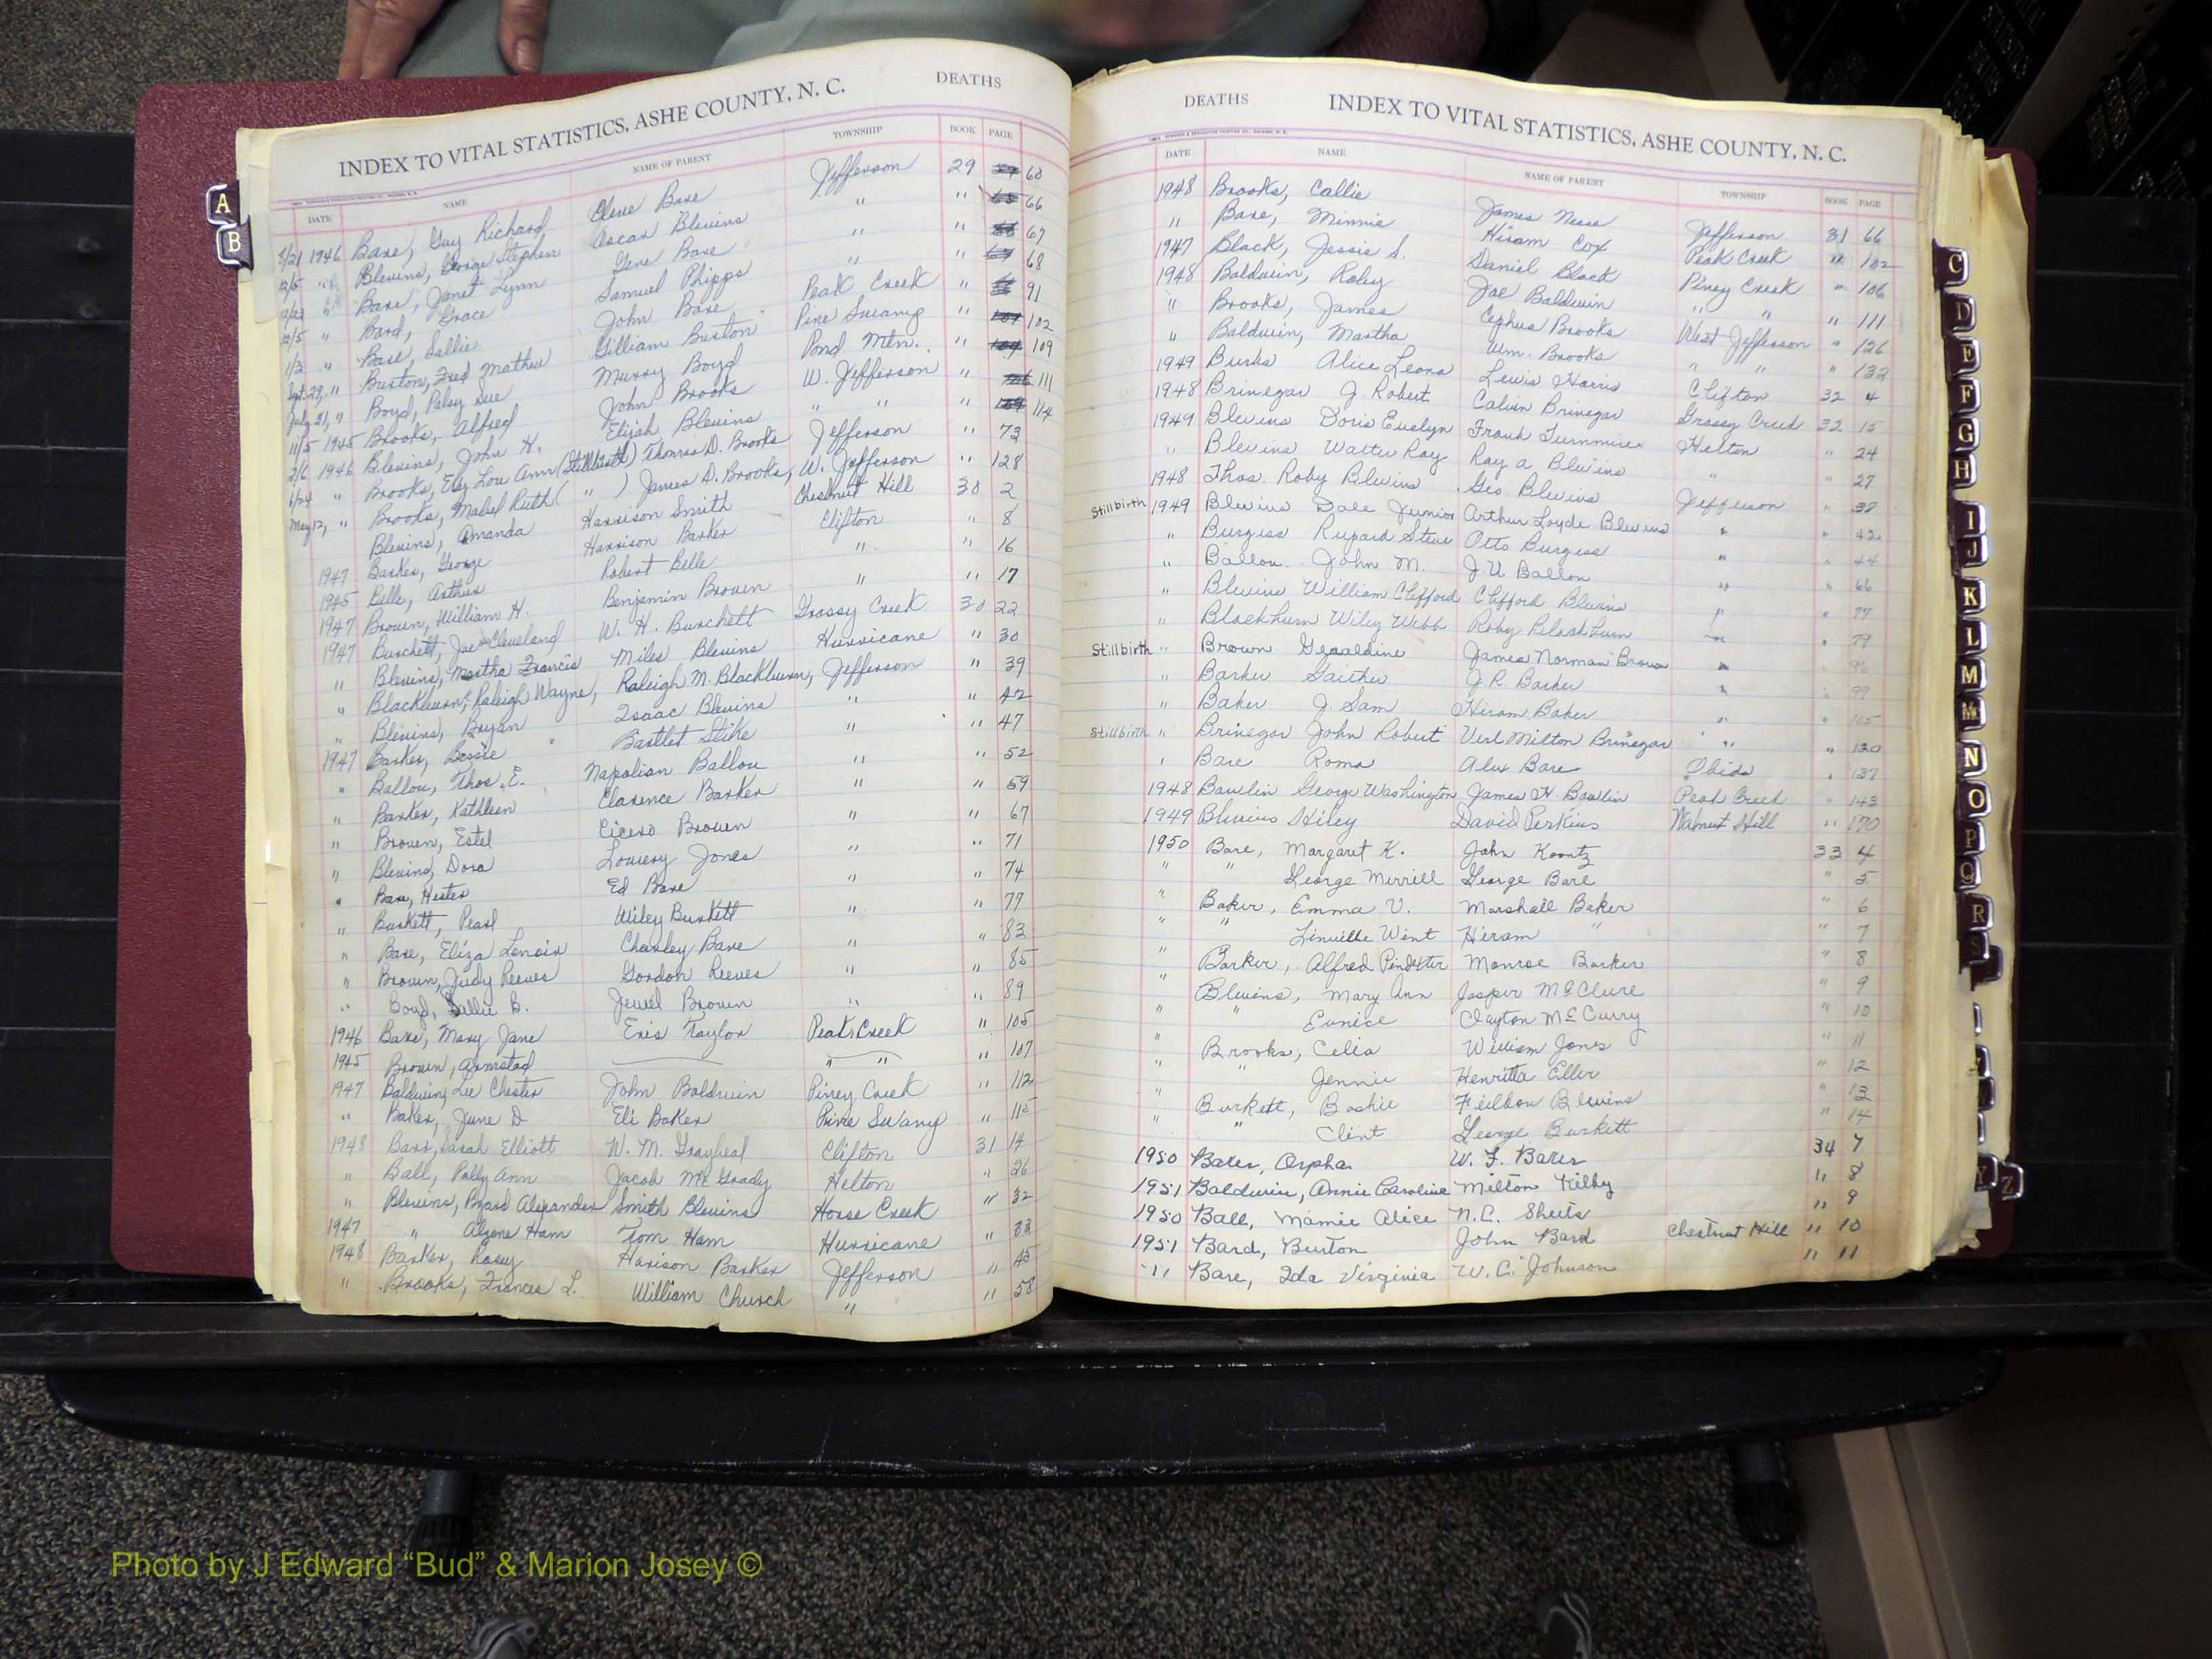 INDEX TO VITAL STATISTICS, ASHE COUNTY, N. C. DEATHS
DATE NAME NAME OF PARENT TOWNSHIP BOOK PAGE
1946 Bare, Guy Richard Cleve Bare Jefferson 29 60
12/5 " Blevins, George Stephen Oscar Blevins " " 66
" Bare, Janet Lynn Gene Bare " " 67
12/5 " Bard, Grace Samuel Phipps " " 68
1/3 " Bare, Sallie John Bare Peak Creek " 91
Sept. 29, " Buston, Fred Mathew Gilliam Buston Pine Swamp " 102
July 31, " Boyd, Patsy Sue Murry Boyd Pond Mtn. " 109
11/5 1945 Brooks, Alfred John Brooks W. Jefferson " 111
2/6 1946 Blevins, John H. Elijah Blevins " " " 114
6/24 " Brooks, Lou Ann (Stillbirth) Thomas D. Brooks Jefferson " 73
May 12, " Brooks, Mabel Ruth ( " ) James D. Brooks, W. Jefferson " 128
Blevins, Amanda Harrison Smith Chestnut Hill 30 2
1947 Barker, George Harrison Barker Clifton " 8
1945 Belle, Arthur Robert Belle " " 16
1947 Brown, William H. Benjamin Brown " " 17
1947 Burchett, Joe Cleveland W. H. Burchett Grassy Creek 30 22
" Blevins, Martha Francis Miles Blevins Hurricane " 30
" Blackburn, Raleigh Wayne, Raleigh M. Blackburn, Jefferson " 39
" Blevins, Bryan Isaac Blevins " " 42
1947 Barker, Bessie Bartlet Stike " " 47
" Ballou, Thos. E. Napolian Ballou " " 52
" Barker, Kathleen Clarence Barker " " 59
" Brown, Estel Cicero Brown " " 67
" Blevins, Dora Lowery Jones " " 71
" Bare, Hester Ed Bare " " 74
" Burkett, Pearl Wiley Burkett " " 77
" Bare, Eliza Lenoir Charley Bare " " 83
" Brown, Judy Reeves Gordon Reeves " " 85
" Boyd, Sallie B. Jewel Brown " " 89
1946 Bare, Mary Jane Eris Taylor Peak Creek " 105
1945 Brown, Armstad " " " 107
1947 Baldwin, Lee Chester John Baldwin Piney Creek " 112
" Baker, June D Eli Baker Pine Swamp " 115
1948 Barr, Sarah Elliott W. M. Graybeal Clifton 31 14
" Ball, Polly Ann Jacob McGrady Helton " 26
" Blevins, Byard Alexander Smith Blevins Horse Creek " 32
1947 " Alzene Ham Tom Ham Hurricane " 33
1948 Barker, Rosey Harison Barker Jefferson " 45
" Brooks, Frances L. William Church " " 58
DEATHS INDEX TO VITAL STATISTICS, ASHE COUNTY, N. C.
DATE NAME NAME OF PARENT TOWNSHIP BOOK PAGE
1948 Brooks, Callie James Ness Jefferson 31 66
" Bare, Minnie Hiram Cox Peak Creek " 102
1947 Black, Jessie S. Daniel Black Piney Creek " 106
1948 Baldwin, Roby Joe Baldwin " " " 111
" Brooks, James Cephus Brooks West Jefferson " 126
" Baldwin, Martha Wm. Brooks " " " 132
1949 Burks Alice Leona Lewis Harris Clifton 32 4
1948 Brinegar J. Robert Calvin Brinegar Grassy Creek 32 15
1949 Blevins Doris Evelyn Frank Turnmire Helton " 24
" Blevins Walter Ray Ray A Blevins " " 27
1948 Thos. Roby Blevins Geo. Blevins Jefferson " 38
Stillbirth 1949 Blevins Dale Junior Arthur Loyde Blevins " " 42
" Burgess Rupard Steve Otto Burgess " " 44
" Ballou John M. J U Ballou " " 66
" Blevins William Clifford Clifford Blevins " " 77
" Blackburn Wiley Webb Roby Blackburn " " 79
Stillbirth " Brown Geraldine James Norman Brown " " 96
" Barker Gaither J. R. Barker " " 99
" Baker J. Sam Hiram Baker " " 105
Stillbirth " Brinegar John Robert Verl Milton Brinegar " " 130
" Bare Roma Alex Bare Obids " 137
1948 Bowlin George Washington James H. Bowlin Peak Creek " 143
1949 Blevins Wiley David Perkins Walnut Hill " 170
1950 Bare, Margaret K. John Koontz 33 4
" " George Merrill George Bare " 5
" Baker, Emma V. Marshall Baker " 6
" " Linville Went Hiram " " 7
" Barker, Alfred Monroe Barker " 8
" Blevins, Mary Ann Jasper McClure " 9
" " Eunice Clayton McCurry " 10
" Brooks, Celia William Jones " 11
" " Jennie Henritta Eller " 12
" Burkett, Bashie Blevins " 13
" " Clint George Burkett " 14
1950 Bater, Orpha W. F. 34 7
1951 Baldwin, Annie Caroline Milton Kilby " 8
1950 Ball, Mamie Alice N.C. Sheets " 9
1951 Bard, Burton John Bard Chestnut Hill " 10
" Bare, Ida Virginia W. C. Johnson " 11
A
B
C
D
E
F
G
H
I
J
K
L
M
Mc
N
O
P
Q
R
S
Y
Z
Photo by J Edward “Bud” & Marion Josey ©